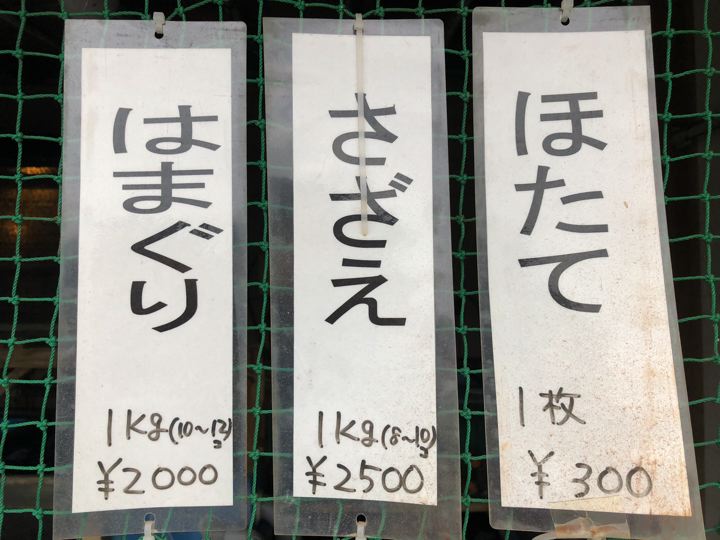 はまぐり
1Kg(10~12コ)
¥2000
さざえ
1Kg(8~10コ)
¥2500
ほたて
1枚
¥300